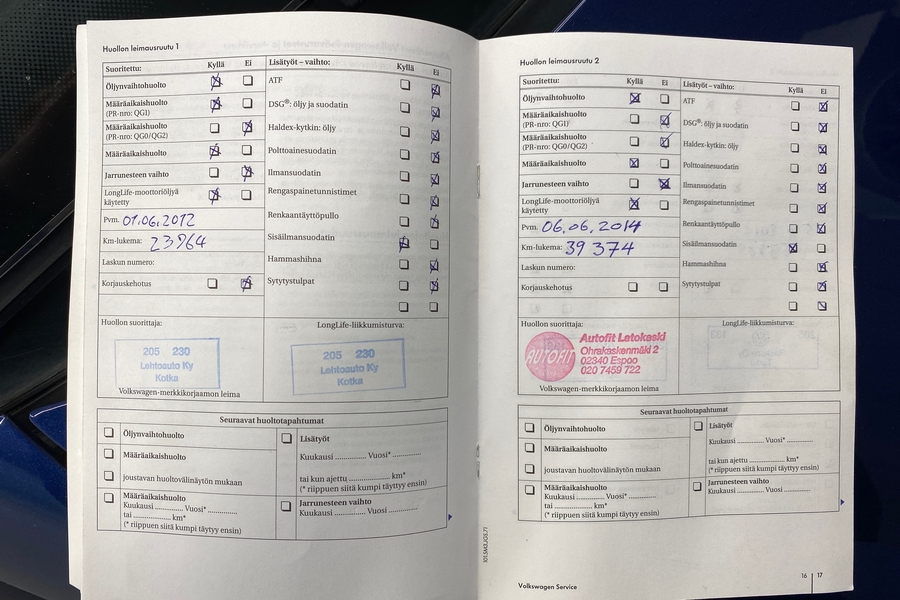 Huollon leimausruutu 1
Suoritettu: Kyllä Ei
Öljynvaihtohuolto
Määräaikaishuolto
(PR-nro: QG1)
Määräaikaishuolto
(PR-nro: QG0/QG2)
Määräaikaishuolto
Jarrunesteen vaihto
LongLife-moottoriöljyä
käytetty
Pvm. 01.06.2012
Km-lukema: 23964
Laskun numero:
Korjauskehotus
Lisätyöt – vaihto: Kyllä Ei
ATF
DSG®: öljy ja suodatin
Haldex-kytkin: öljy
Polttoainesuodatin
Ilmansuodatin
Rengaspainetunnistimet
Renkaantäyttöpullo
Sisäilmansuodatin
Hammashihna
Sytytystulpat
Huollon suorittaja:
205 230
Lehtoauto Ky
Kotka
Volkswagen-merkkikorjaamon leima
LongLife-liikkumisturva:
205 230
Lehtoauto Ky
Kotka
Seuraavat huoltotapahtumat
Öljynvaihtohuolto
Määräaikaishuolto
joustavan huoltovälinäytön mukaan
Määräaikaishuolto
Kuukausi ............. Vuosi* .............
tai ................ km*
(* riippuen siitä kumpi täytyy ensin)
Lisätyöt
Kuukausi ............. Vuosi* .............
tai kun ajettu ................ km*
(* riippuen siitä kumpi täyttyy ensin)
Jarrunesteen vaihto
Kuukausi ............. Vuosi .............
Huollon leimausruutu 2
Suoritettu: Kyllä Ei
Öljynvaihtohuolto
Määräaikaishuolto
(PR-nro: QG1)
Määräaikaishuolto
(PR-nro: QG0/QG2)
Määräaikaishuolto
Jarrunesteen vaihto
LongLife-moottoriöljyä
käytetty
Pvm. 06.06.2014
Km-lukema: 39 374
Laskun numero:
Korjauskehotus
Lisätyöt – vaihto: Kyllä Ei
ATF
DSG®: öljy ja suodatin
Haldex-kytkin: öljy
Polttoainesuodatin
Ilmansuodatin
Rengaspainetunnistimet
Renkaantäyttöpullo
Sisäilmansuodatin
Hammashihna
Sytytystulpat
Huollon suorittaja:
AUTOFIT
Autofit Latokaski
Ohrakaskenmäki 2
02340 Espoo
020 7459 722
Volkswagen-merkkikorjaamon leima
LongLife-liikkumisturva:
Seuraavat huoltotapahtumat
Öljynvaihtohuolto
Määräaikaishuolto
joustavan huoltovälinäytön mukaan
Määräaikaishuolto
Kuukausi ............. Vuosi* .............
tai ................ km*
(* riippuen siitä kumpi täytyy ensin)
Lisätyöt
Kuukausi ............. Vuosi* .............
tai kun ajettu ................ km*
(* riippuen siitä kumpi täyttyy ensin)
Jarrunesteen vaihto
Kuukausi ............. Vuosi* .............
Volkswagen Service
16 | 17